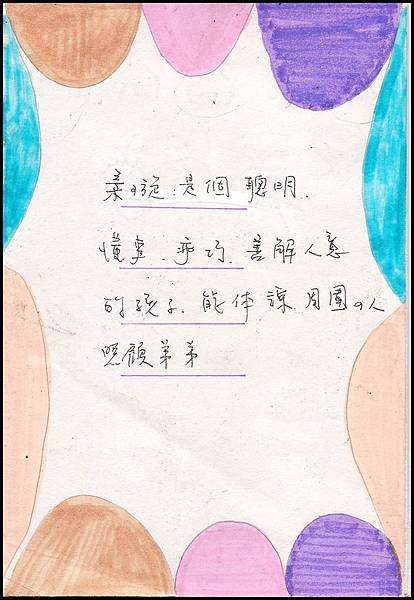 亲说：是個聰明、
懂事、乖巧、善解人意
的孩子、能体諒周圍的人
照顧弟弟